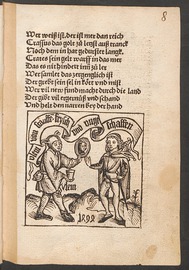 8
Wer weiß ist, der ist mer dan reich
Crassus das golt zu letzst auß tranck
Noch dem in hat gedurstet langk,
Crates sein gelt warff in das mer
Das es nit hindert im zu ler
Wer samlet das zergenglich ist
Der grebt sein sel in kot und mist
Wer vil new fund macht durch die land
Der gibt vil ergernüß und schand
Und helt den narren bey der hand
1499